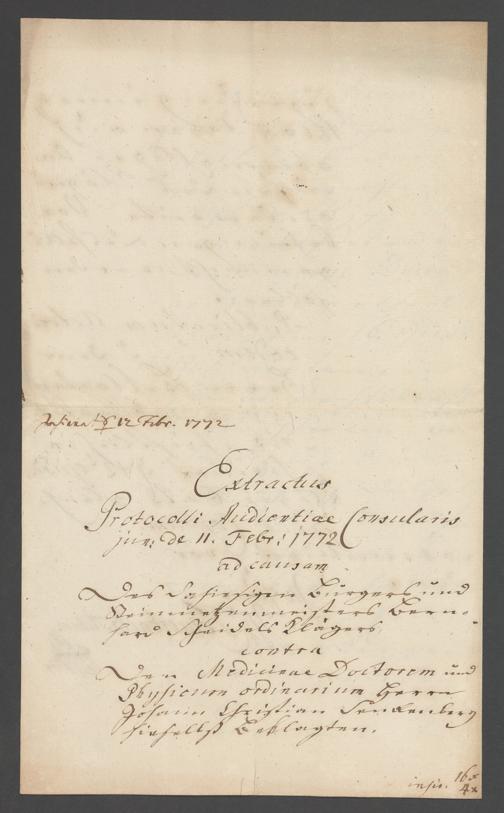 12 Febr. 1772
Extractus
Protocolli Audientiae Consularis
jun: de 11. Febr: 1772
ad causam
Des hiesigen Burgers und
Steinmetzenmeisters Bern-
hard Scheidels Klägers
contra
Den Medicinae Doctorem und
Physicum ordinarium Herrn
Johann Christian Senckenberg
hieselbst Beklagten.